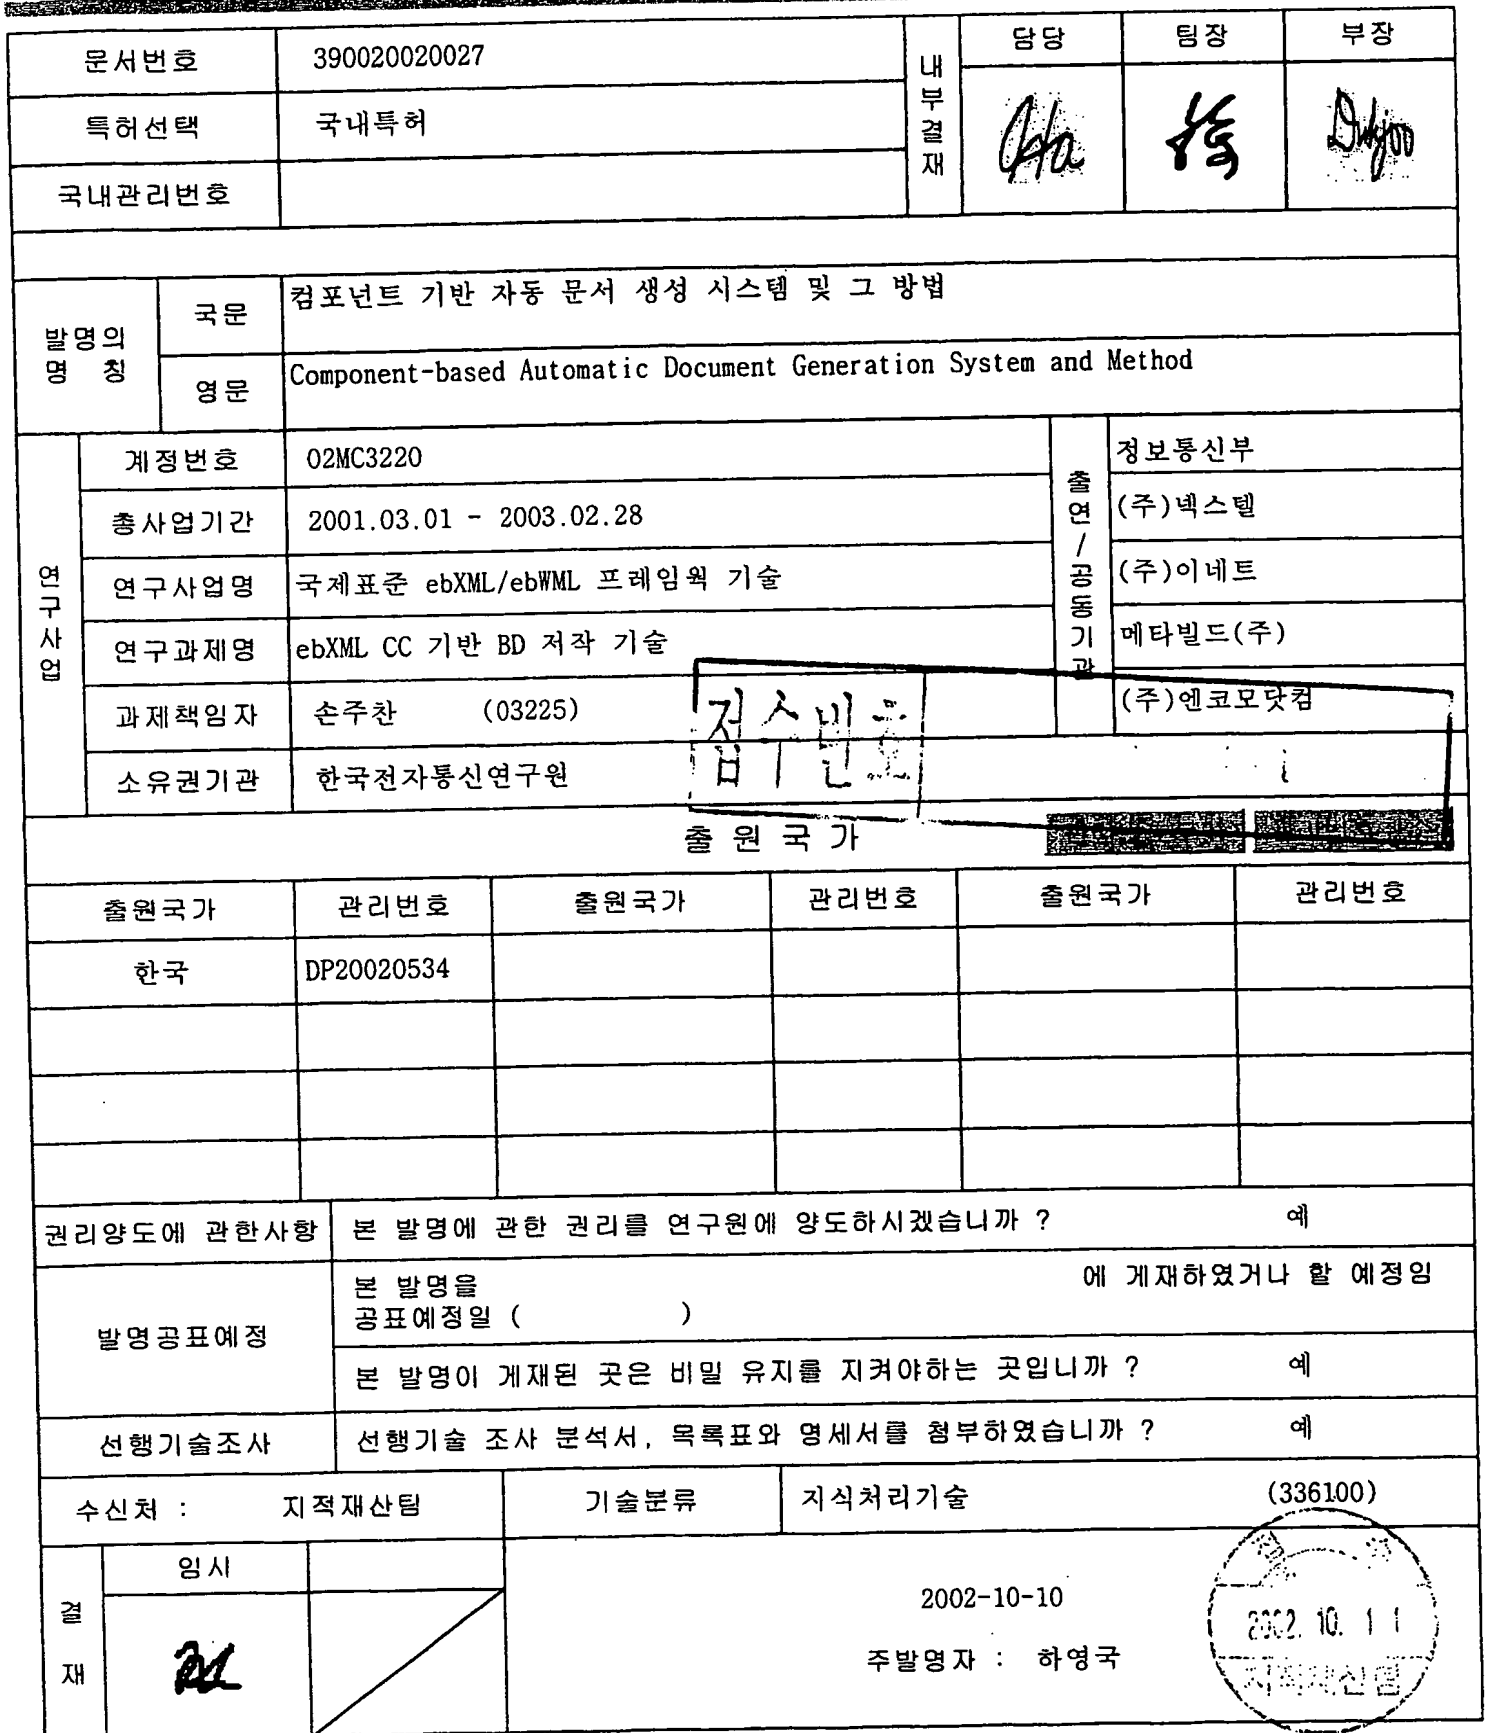 문서번호 390020020027 내부결재 담당 팀장 부장
특허선택 국내특허
국내관리번호
발명의 명 칭 국문 컴포넌트 기반 자동 문서 생성 시스템 및 그 방법
영문 Component-based Automatic Document Generation System and Method
연구사업 계정번호 02MC3220 출연/공동기관 정보통신부
총사업기간 2001.03.01 - 2003.02.28 (주)넥스텔
연구사업명 국제표준 ebXML/ebWML 프레임웍 기술 (주)이네트
연구과제명 ebXML CC 기반 BD 저작 기술 메타빌드(주)
과제책임자 손주찬 (03225) (주)엔코모닷컴
접수번호
소유권기관 한국전자통신연구원
출원국가
출원국가 관리번호 출원국가 관리번호 출원국가 관리번호
한국 DP20020534
권리양도에 관한사항 본 발명에 관한 권리를 연구원에 양도하시겠습니까 ? 예
발명공표예정 본 발명을 에 게재하였거나 할 예정임
공표예정일 ( )
본 발명이 게재된 곳은 비밀 유지를 지켜야하는 곳입니까 ? 예
선행기술조사 선행기술 조사 분석서, 목록표와 명세서를 첨부하였습니까 ? 예
수신처 : 지적재산팀 기술분류 지식처리기술 (336100)
결재 임시
2002-10-10
주발명자 : 하영국
접수
2002. 10. 11
지적재산팀